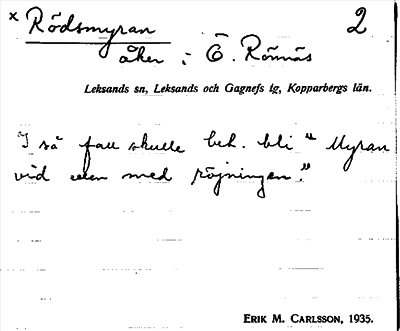 × Rödsmyran 2
åker i Ö. Rönnäs
Leksands sn, Leksands och Gagnefs tg, Kopparbergs län.
I så fall skulle beh. bli "Myran
vid eller med röjningen."
ERIK M. CARLSSON, 1935.